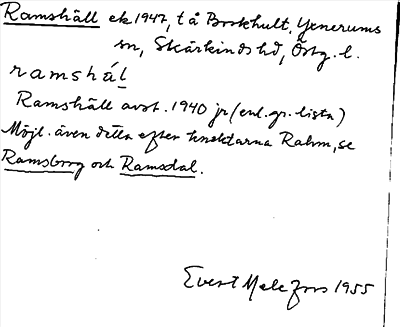 Ramshäll ek 1947, t å Borkhult, Yxnerums
sn, Skärkinds hd, Östg. l.
ramshál
Ramshäll avst. 1940 jr (enl. gr. lista)
Möjl. även detta efter knektarna Rahm, se
Ramsborg och Ramsdal.
Evert Melefors 1955